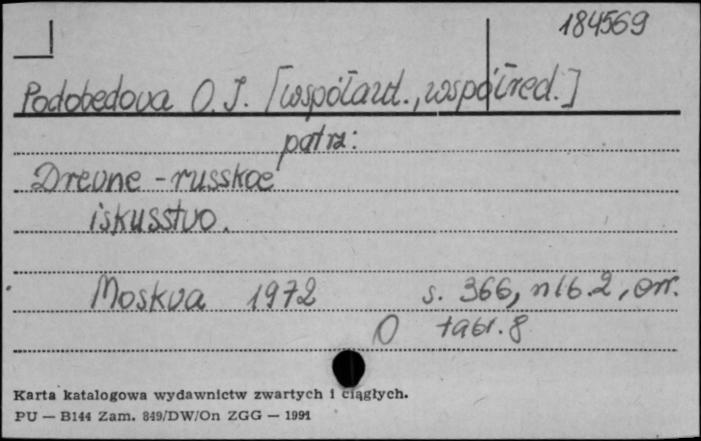 184569
Podobedova O. I. [współaut., współred.]
patrz:
Drevne-russkoe
iskusstvo.
Moskva 1972 s. 366, nlb. 2, err.
O tabl. 8
Karta katalogowa wydawnictw zwartych i ciągłych.
PU — B144 Zam. 849/DW/On ZGG — 1991